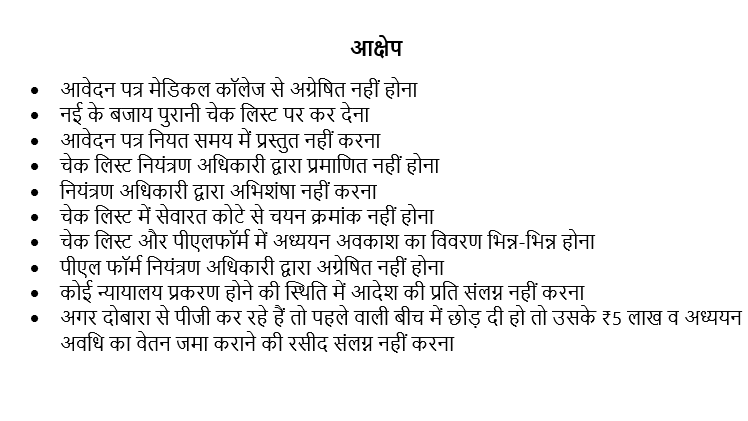 आक्षेप
• आवेदन पत्र मेडिकल कॉलेज से अग्रेषित नहीं होना
• नई के बजाय पुरानी चेक लिस्ट पर कर देना
• आवेदन पत्र नियत समय में प्रस्तुत नहीं करना
• चेक लिस्ट नियंत्रण अधिकारी द्वारा प्रमाणित नहीं होना
• नियंत्रण अधिकारी द्वारा अभिशंषा नहीं करना
• चेक लिस्ट में सेवारत कोटे से चयन क्रमांक नहीं होना
• चेक लिस्ट और पीएलफॉर्म में अध्ययन अवकाश का विवरण भिन्न-भिन्न होना
• पीएल फॉर्म नियंत्रण अधिकारी द्वारा अग्रेषित नहीं होना
• कोई न्यायालय प्रकरण होने की स्थिति में आदेश की प्रति संलग्न नहीं करना
• अगर दोबारा से पीजी कर रहे हैं तो पहले वाली बीच में छोड़ दी हो तो उसके ₹5 लाख व अध्ययन
अवधि का वेतन जमा कराने की रसीद संलग्न नहीं करना